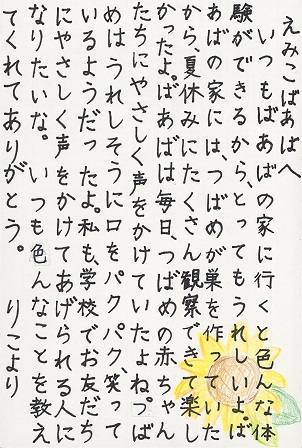 えみこばあばへ
いつもばあばの家に行くと色んな体
験ができるから、とってもうれしいよ。ば
あばの家には、つばめが巣を作っていた
から、夏休みにたくさん観察できて楽し
かったよ。ばあばは毎日、つばめの赤ちゃん
たちにやさしく声をかけていたよね。つば
めはうれしそうに口をパクパク笑って
いるようだったよ。私も、学校でお友だち
にやさしく声をかけてあげられる人に
なりたいな。いつも色んなことを教え
てくれてありがとう。　りこより